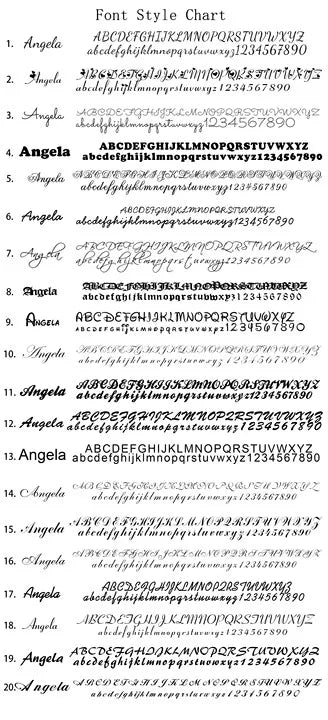 Font Style Chart
1. Angela ABCDEFGHIJKLMNOPQRSTUVWXYZ
abcdefghijklmnopqrstuvwxyz1234567890
2. Angela ABCDEFGHIJKLMNOPQRSTUVWXYZ
abcdefghijklmnopqrstuvwxyz1234567890
3. Angela ABCDEFGHIJKLMNOPQRSTUVWXYZ
abcdefghijklmnopqrstuvwxyz1234567890
4. Angela ABCDEFGHIJKLMNOPQRSTUVWXYZ
abcdefghijklmnopqrstuvwxyz1234567890
5. Angela ABCDEFGHIJKLMNOPQRSTUVWXYZ
abcdefghijklmnopqrstuvwxyz1234567890
6. Angela ABCDEFGHIJKLMNOPQRSTUVWXYZ
abcdefghijklmnopqrstuvwxyz1234567890
7. Angela ABCDEFGHIJKLMNOPQRSTUVWXYZ
abcdefghijklmnopqrstuvwxyz
8. Angela ABCDEFGHIJKLMNOPQRSTUVWXYZ
abcdefghijklmnopqrstuvwxyz1234567890
9. Angela ABCDEFGHIJKLMNOPQRSTUVWXYZ
abcdefghijklmnopqrstuvwxyz1234567890
10. Angela ABCDEFGHIJKLMNOPQRSTUVWXYZ
abcdefghijklmnopqrstuvwxyz1234567890
11. Angela ABCDEFGHIJKLMNOPQRSTUVWXYZ
abcdefghijklmnopqrstuvwxyz1234567890
12. Angela ABCDEFGHIJKLMNOPQRSTUVWXYZ
abcdefghijklmnopqrstuvwxyz1234567890
13. Angela ABCDEFGHIJKLMNOPQRSTUVWXYZ
abcdefghijklmnopqrstuvwxyz1234567890
14. Angela ABCDEFGHIJKLMNOPQRSTUVWXYZ
abcdefghijklmnopqrstuvwxyz1234567890
15. Angela ABCDEFGHIJKLMNOPQRSTUVWXYZ
abcdefghijklmnopqrstuvwxyz1234567890
16. Angela ABCDEFGHIJKLMNOPQRSTUVWXYZ
abcdefghijklmnopqrstuvwxyz1234567890
17. Angela ABCDEFGHIJKLMNOPQRSTUVWXYZ
abcdefghijklmnopqrstuvwxyz1234567890
18. Angela ABCDEFGHIJKLMNOPQRSTUVWXYZ
abcdefghijklmnopqrstuvwxyz1234567890
19. Angela ABCDEFGHIJKLMNOPQRSTUVWXYZ
abcdefghijklmnopqrstuvwxyz1234567890
20. Angela ABCDEFGHIJKLMNOPQRSTUVWXYZ
abcdefghijklmnopqrstuvwxyz1234567890